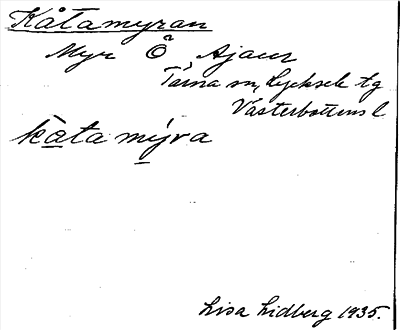 Kåtamyran
Myr Ö Ajaur
Tärna sn, Lycksele tg
Västerbottens l
kåta mýra
Lisa Lidberg 1935.